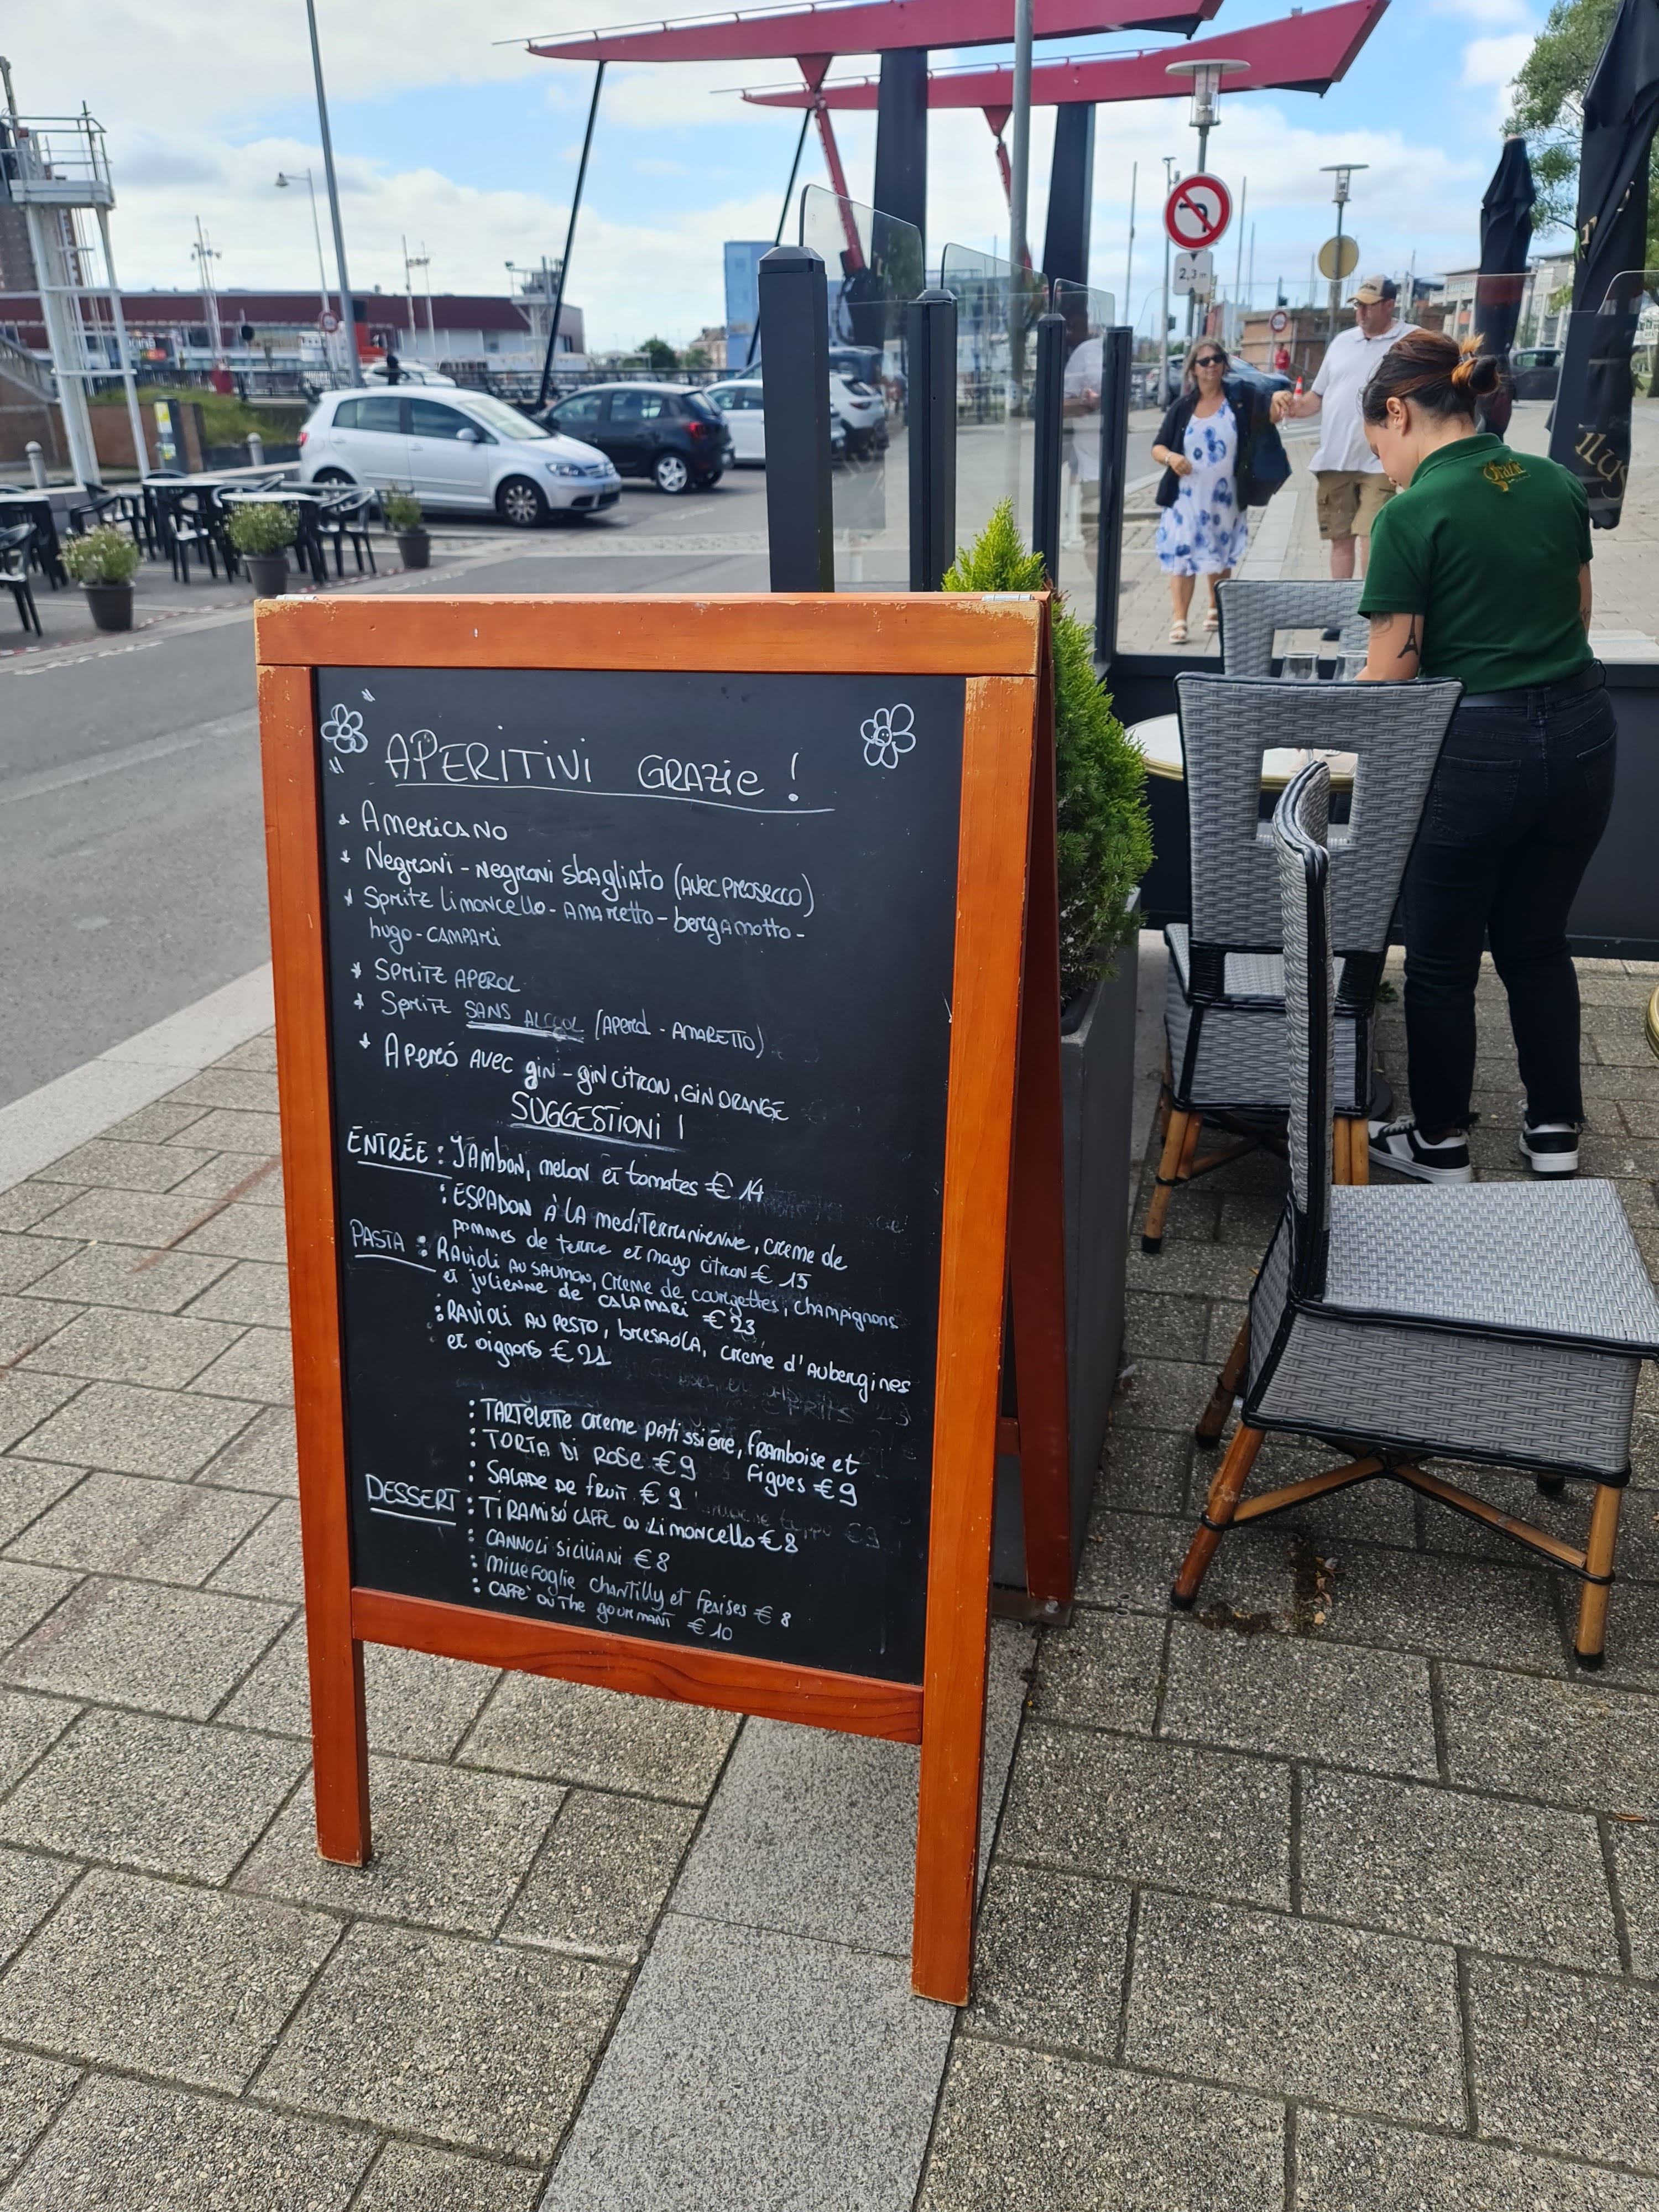 2,3 m
APERITIVI GRAZIE !
AMERICANO
NEGRONI - NEGRONI SBAGLIATO (AVEC PROSECCO)
SPRITZ LIMONCELLO - AMARETTO - BERGAMOTTO -
HUGO - CAMPARI
SPRITZ APEROL
SPRITZ SANS ALCOOL (APEROL - AMARETTO)
APERÓ AVEC GIN - GIN CITRON, GIN ORANGE
SUGGESTIONI !
ENTRÉE : JAMBON, MELON ET TOMATES € 14
: ESPADON À LA MEDITERRUNIENNE, CREME DE
POMMES DE TERRE ET MAYO CITRON € 15
PASTA : RAVIOLI AU SAUMON, CREME DE COURGETTES, CHAMPIGNONS
ET JULIENNE DE CALAMARI € 23
: RAVIOLI AU PESTO, BRESAOLA, CREME D'AUBERGINES
ET OIGNONS € 21
: TARTELETTE CREME PATISSIÉRE, FRAMBOISE ET
FIGUES € 9
: TORTA DI ROSE € 9
: SALADE DE FRUIT € 9
DESSERT : TIRAMISÓ CAFFE OU LIMONCELLO € 8
: CANNOLI SICILIANI € 8
: MILLEFOGLIE CHANTILLY ET FRAISES € 8
: CAFFE' OU THE GOURMANT € 10